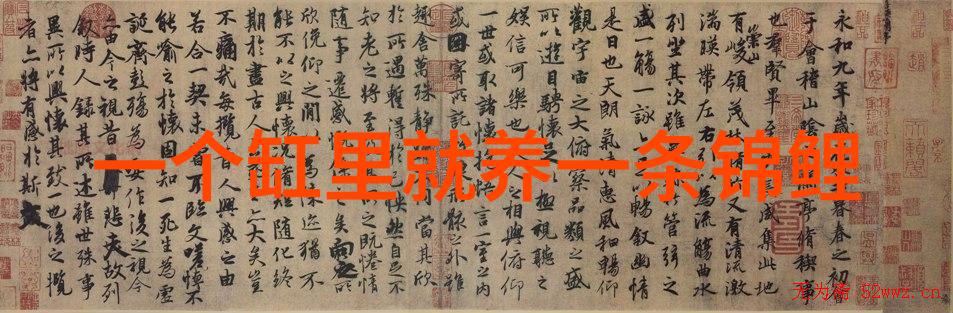 一个缸里就养一条锦鲤
永和九年歲在癸丑暮春之初會
于會稽山陰之蘭亭脩稧事
也羣賢畢至少長咸集此地
有崇山峻領茂林脩竹又有清流激
湍暎帶左右引以為流觴曲水
列坐其次雖無絲竹管弦之
盛一觴一詠亦足以暢敘幽情
是日也天朗氣清惠風和暢仰
觀宇宙之大俯察品類之盛
所以遊目騁懷足以極視聽之
娛信可樂也夫人之相與俯仰
一世或取諸懷抱悟言一室之內
或因寄所託放浪形骸之外雖
趣舍萬殊靜躁不同當其欣
於所遇暫得於己怏然自足不
知老之將至及其所之既惓情
隨事遷感慨係之矣向之所
欣俛仰之閒以為陳迹猶不
能不以之興懷況脩短隨化終
期於盡古人云死生亦大矣豈
不痛哉每攬昔人興感之由
若合一契未嘗不臨文嗟悼不
能喻之於懷固知一死生為虛
誕齊彭殤為妄作後之視今
亦由今之視昔悲夫故列
敘時人錄其所述雖世殊事
異所以興懷其致一也後之攬
者亦將有感於斯文
52wwz.cn